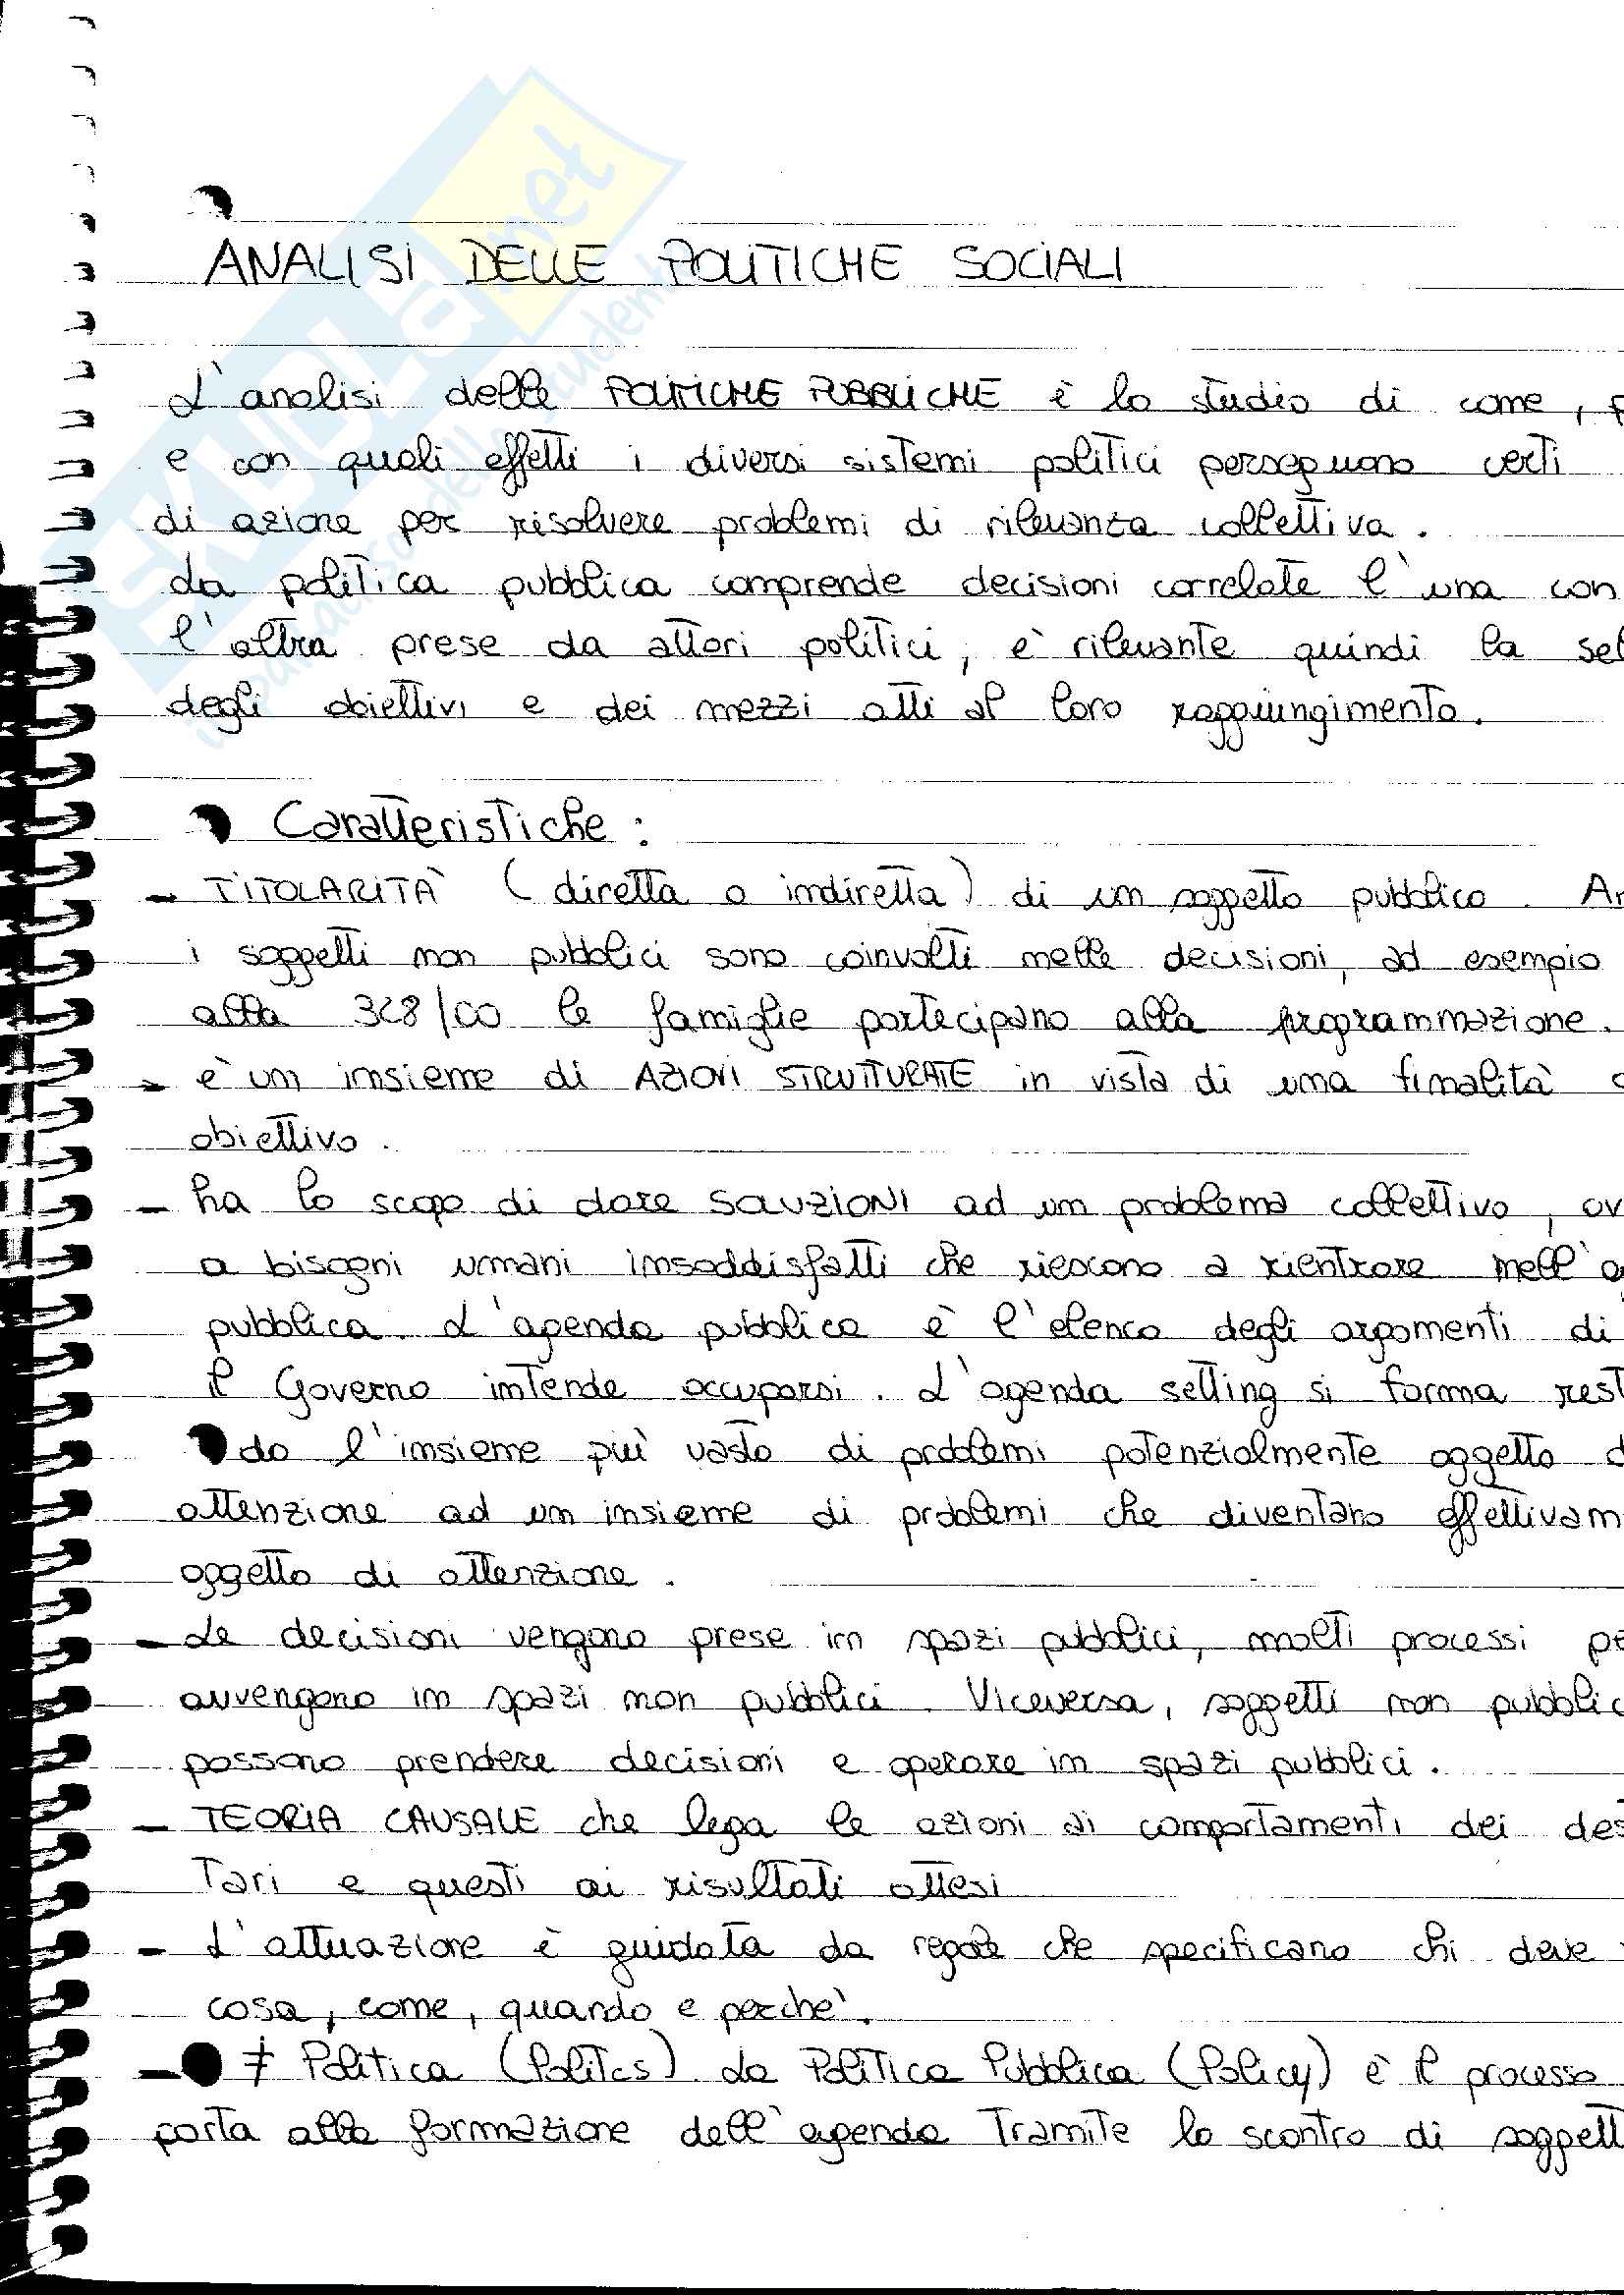 ANALISI DELLE POLITICHE SOCIALI
L'analisi delle POLITICHE PUBBLICHE è lo studio di come,
e con quali effetti i diversi sistemi politici perseguono certi
di azione per risolvere problemi di rilevanza collettiva.
La politica pubblica comprende decisioni correlate l'una con
l'altra prese da attori politici, è rilevante quindi la sel
degli obiettivi e dei mezzi atti al loro raggiungimento.
Caratteristiche:
- TITOLARITÀ (diretta o indiretta) di un soggetto pubblico. An
i soggetti non pubblici sono coinvolti nelle decisioni, ad esempio
alla 328/00 le famiglie partecipano alla programmazione.
- è un insieme di AZIONI STRUTTURATE in vista di una finalità o
obiettivo.
- ha lo scopo di dare SOLUZIONI ad un problema collettivo, ov
a bisogni umani insoddisfatti che riescono a rientrare nell'a
pubblica. L'agenda pubblica è l'elenco degli argomenti di
il Governo intende occuparsi. L'agenda setting si forma rest
do l'insieme più vasto di problemi potenzialmente oggetto d
attenzione ad un insieme di problemi che diventano effettivam
oggetto di attenzione.
- Le decisioni vengono prese in spazi pubblici, molti processi pe
avvengono in spazi non pubblici. Viceversa, soggetti non pubblic
possono prendere decisioni e operare in spazi pubblici.
- TEORIA CAUSALE che lega le azioni ai comportamenti dei des
tari e questi ai risultati attesi
- L'attuazione è guidata da regole che specificano chi deve
cosa, come, quando e perchè.
- ≠ Politica (Politcs). La Politica Pubblica (Policy) è il processo
porta alla formazione dell'agenda tramite lo scontro di soggett
SKUOLA.net